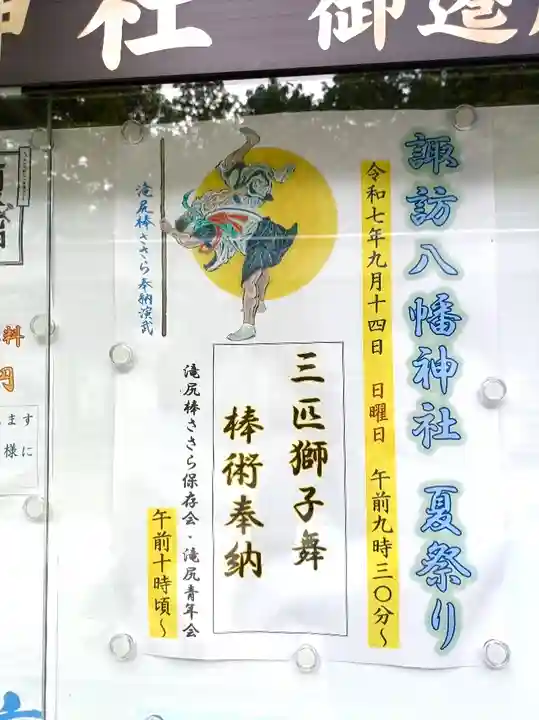 神社 御遷
諏訪八幡神社 夏祭り
令和七年九月十四日 日曜日 午前九時三〇分~
三匹獅子舞
棒術奉納
滝尻棒ささら保存会・滝尻青年会
午前十時頃~
滝尻棒ささら奉納演武
料
円
ます
様に